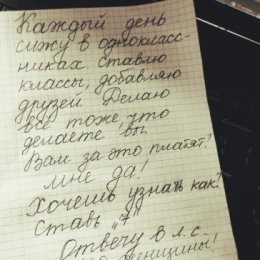 Каждый день
сижу в однокласс-
никах. Ставлю
классы, добавляю
друзей. Делаю
все тоже, что
делаете вы.
Вам за это платят?
Мне да!
Хочешь узнать как?
Ставь „+"
Отвечу в л.с..
женщины!